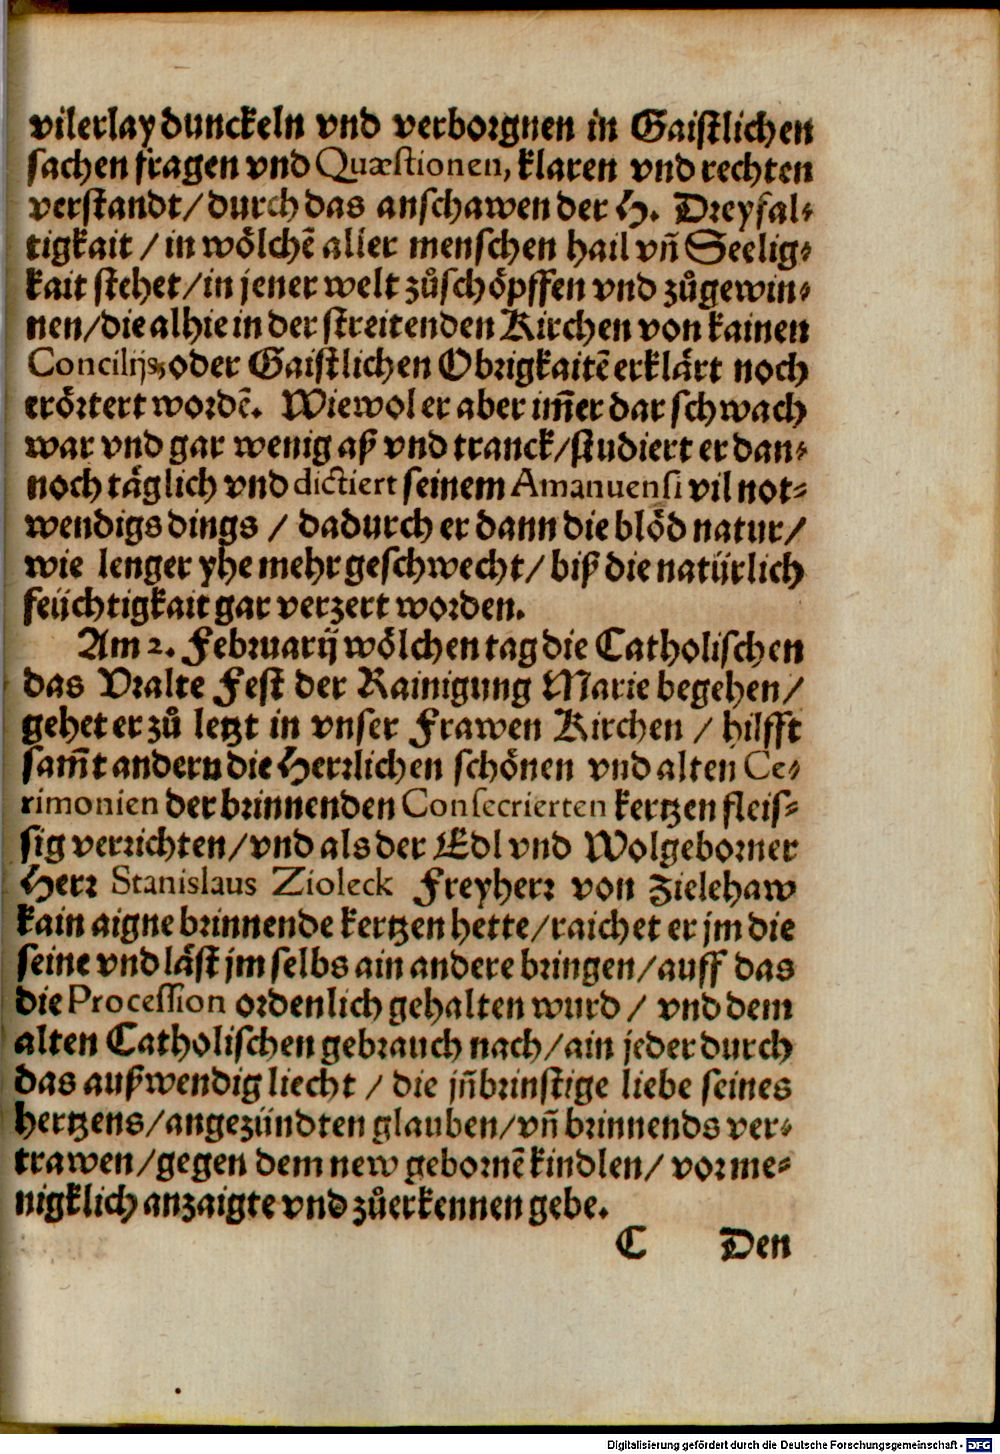 vilerlay dunckeln vnd verborgnen in Gaistlichen
sachen fragen vnd Quæstionen, klaren vnd rechten
verstandt/ durch das anschawen der H. Dreyfal⸗
tigkait / in wölchē aller menschen hail vn̄ Seelig⸗
kait stehet/ in jener welt zůschöpffen vnd zůgewin⸗
nen/ die alhie in der streitenden Kirchen von kainen
Concilijs, oder Gaistlichen Obrigkaitē erklärt noch
erörtert wordē. Wiewol er aber im̄er dar schwach
war vnd gar wenig aß vnd tranck/ studiert er dan⸗
noch täglich vnd dictiert seinem Amanuensi vil not⸗
wendigs dings / dadurch er dann die blöd natur/
wie lenger yhe mehr geschwecht/ biß die natürlich
feüchtigkait gar verzert worden.
Am 2. Februarij wölchen tag die Catholischen
das Vralte Fest der Rainigung Marie begehen/
gehet er zů letzt in vnser Frawen Kirchen / hilfft
sam̄t andern die Herrlichen schönen vnd alten Ce⸗
rimonien der brinnenden Consecrierten kertzen fleis⸗
sig verrichten/ vnd als der Edl vnd Wolgeborner
Herr Stanislaus Zioleck Freyherr von Zielehaw
kain aigne brinnende kertzen hette/ raichet er jm die
seine vnd läst jm selbs ain andere bringen/ auff das
die Procession ordenlich gehalten wurd / vnd dem
alten Catholischen gebrauch nach/ ain jeder durch
das außwendig liecht / die jn̄brinstige liebe seines
hertzens/ angezündten glauben/ vn̄ brinnends ver⸗
trawen/ gegen dem new gebornē kindlen/ vor me⸗
nigklich anzaigte vnd zůerkennen gebe.
C Den
Digitalisierung gefördert durch die Deutsche Forschungsgemeinschaft - DFG